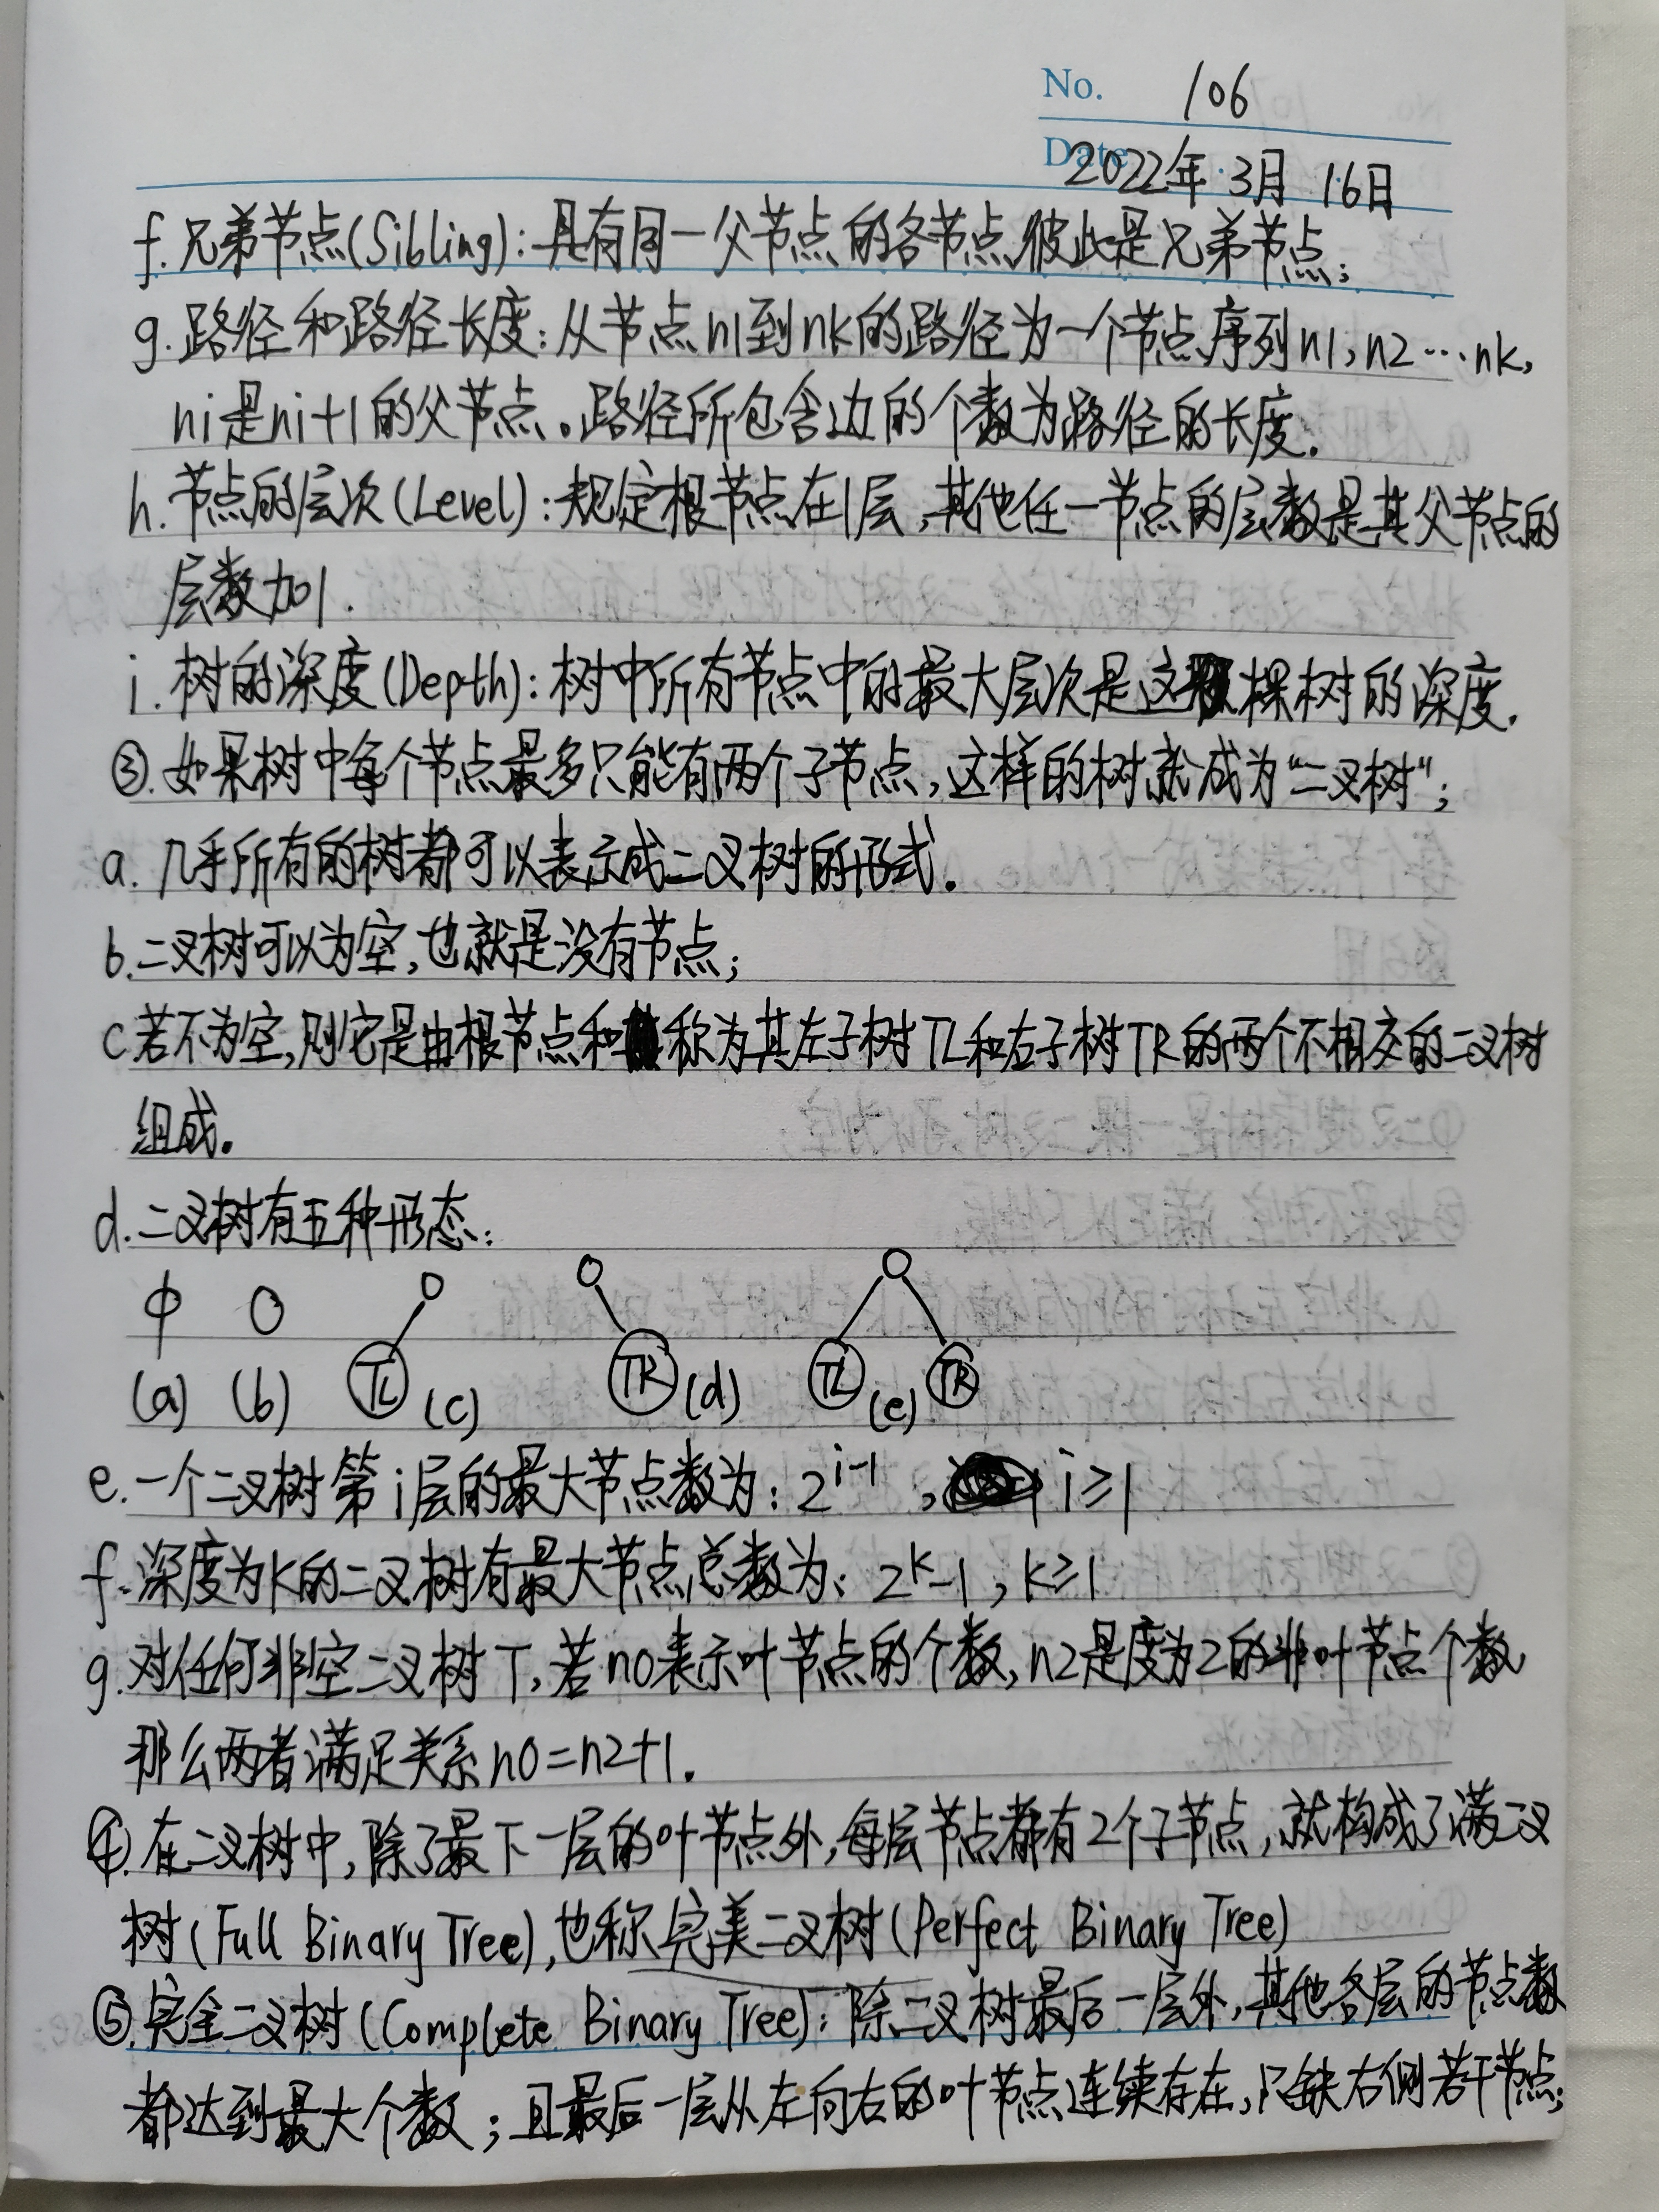 No. 106
Date 2022年3月16日
f.兄弟节点(Sibling):具有同一父节点的各节点彼此是兄弟节点;
g.路径和路径长度:从节点n1到nk的路径为一个节点序列n1,n2…nk,
ni是ni+1的父节点。路径所包含边的个数为路径的长度.
h.节点的层次(Level):规定根节点在1层,其他任一节点的层数是其父节点的
层数加1.
i.树的深度(Depth):树中所有节点中的最大层次是这棵树的深度.
③.如果树中每个节点最多只能有两个子节点,这样的树就成为"二叉树";
a.几乎所有的树都可以表示成二叉树的形式.
b.二叉树可以为空,也就是没有节点;
c若不为空,则它是由根节点和称为其左子树TL和右子树TR的两个不相交的二叉树
组成。
d.二叉树有五种形态:
ф
TL TR TL TR
(a) (b) (c) (d) (e)
e.一个二叉树第i层的最大节点数为:2^i-1,i≥1
f.深度为k的二叉树有最大节点总数为:2^k-1,k≥1
g.对任何非空二叉树T,若n0表示叶节点的个数,n2是度为2的非叶节点个数
那么两者满足关系n0=n2+1.
④.在二叉树中,除了最下一层的叶节点外,每层节点都有2个子节点,就构成了满二叉
树(Full Binary Tree),也称完美二叉树(Perfect Binary Tree)
⑤.完全二叉树(Complete Binary Tree):除二叉树最后一层外,其他各层的节点数
都达到最大个数;且最后一层从左向右的叶节点连续存在,只缺右侧若干节点;